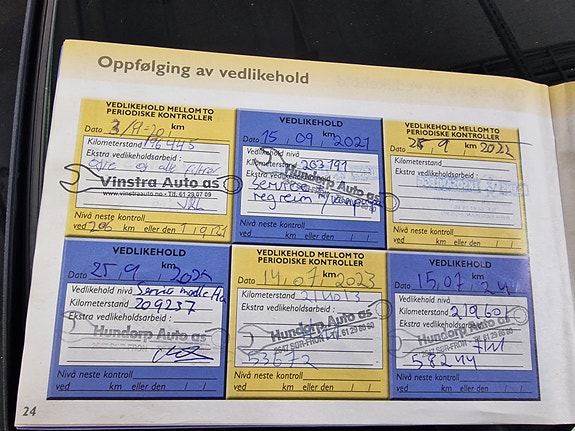 Oppfølging av vedlikehold
VEDLIKEHOLD MELLOM TO
PERIODISKE KONTROLLER
Dato 3/9-20 km
Kilometerstand 196445
Ekstra vedlikeholdsarbeid :
Vinstra Auto as
www.vinstraauto.no • Tlf. 61 29 07 09
Nivå neste kontroll
ved km eller den
VEDLIKEHOLD
Dato 15, 09, 2021 km
Vedlikehold nivå
Kilometerstand 203191
Ekstra vedlikeholdsarbeid :
Hundorp Auto as
Service
regreim
Nivå neste kontroll
ved km eller den / /
VEDLIKEHOLD MELLOM TO
PERIODISKE KONTROLLER
Dato 25, 9, 2022 km
Kilometerstand
Ekstra vedlikeholdsarbeid :
Nivå neste kontroll
ved km eller den / /
VEDLIKEHOLD
Dato 25, 9, km
Vedlikehold nivå Service
Kilometerstand 209237
Ekstra vedlikeholdsarbeid :
Hundorp Auto as
Nivå neste kontroll
ved km eller den / /
VEDLIKEHOLD MELLOM TO
PERIODISKE KONTROLLER
Dato 14, 07, 2023 km
Kilometerstand
Ekstra vedlikeholdsarbeid :
Hundorp Auto as
2647 SØR-FRON Tlf. 61 29 66 60
53672
Nivå neste kontroll
ved km eller den / /
VEDLIKEHOLD
Dato 15, 07, 24 km
Vedlikehold nivå
Kilometerstand 219607
Ekstra vedlikeholdsarbeid :
Hundorp Auto as
58244
Nivå neste kontroll
ved km eller den / /
24